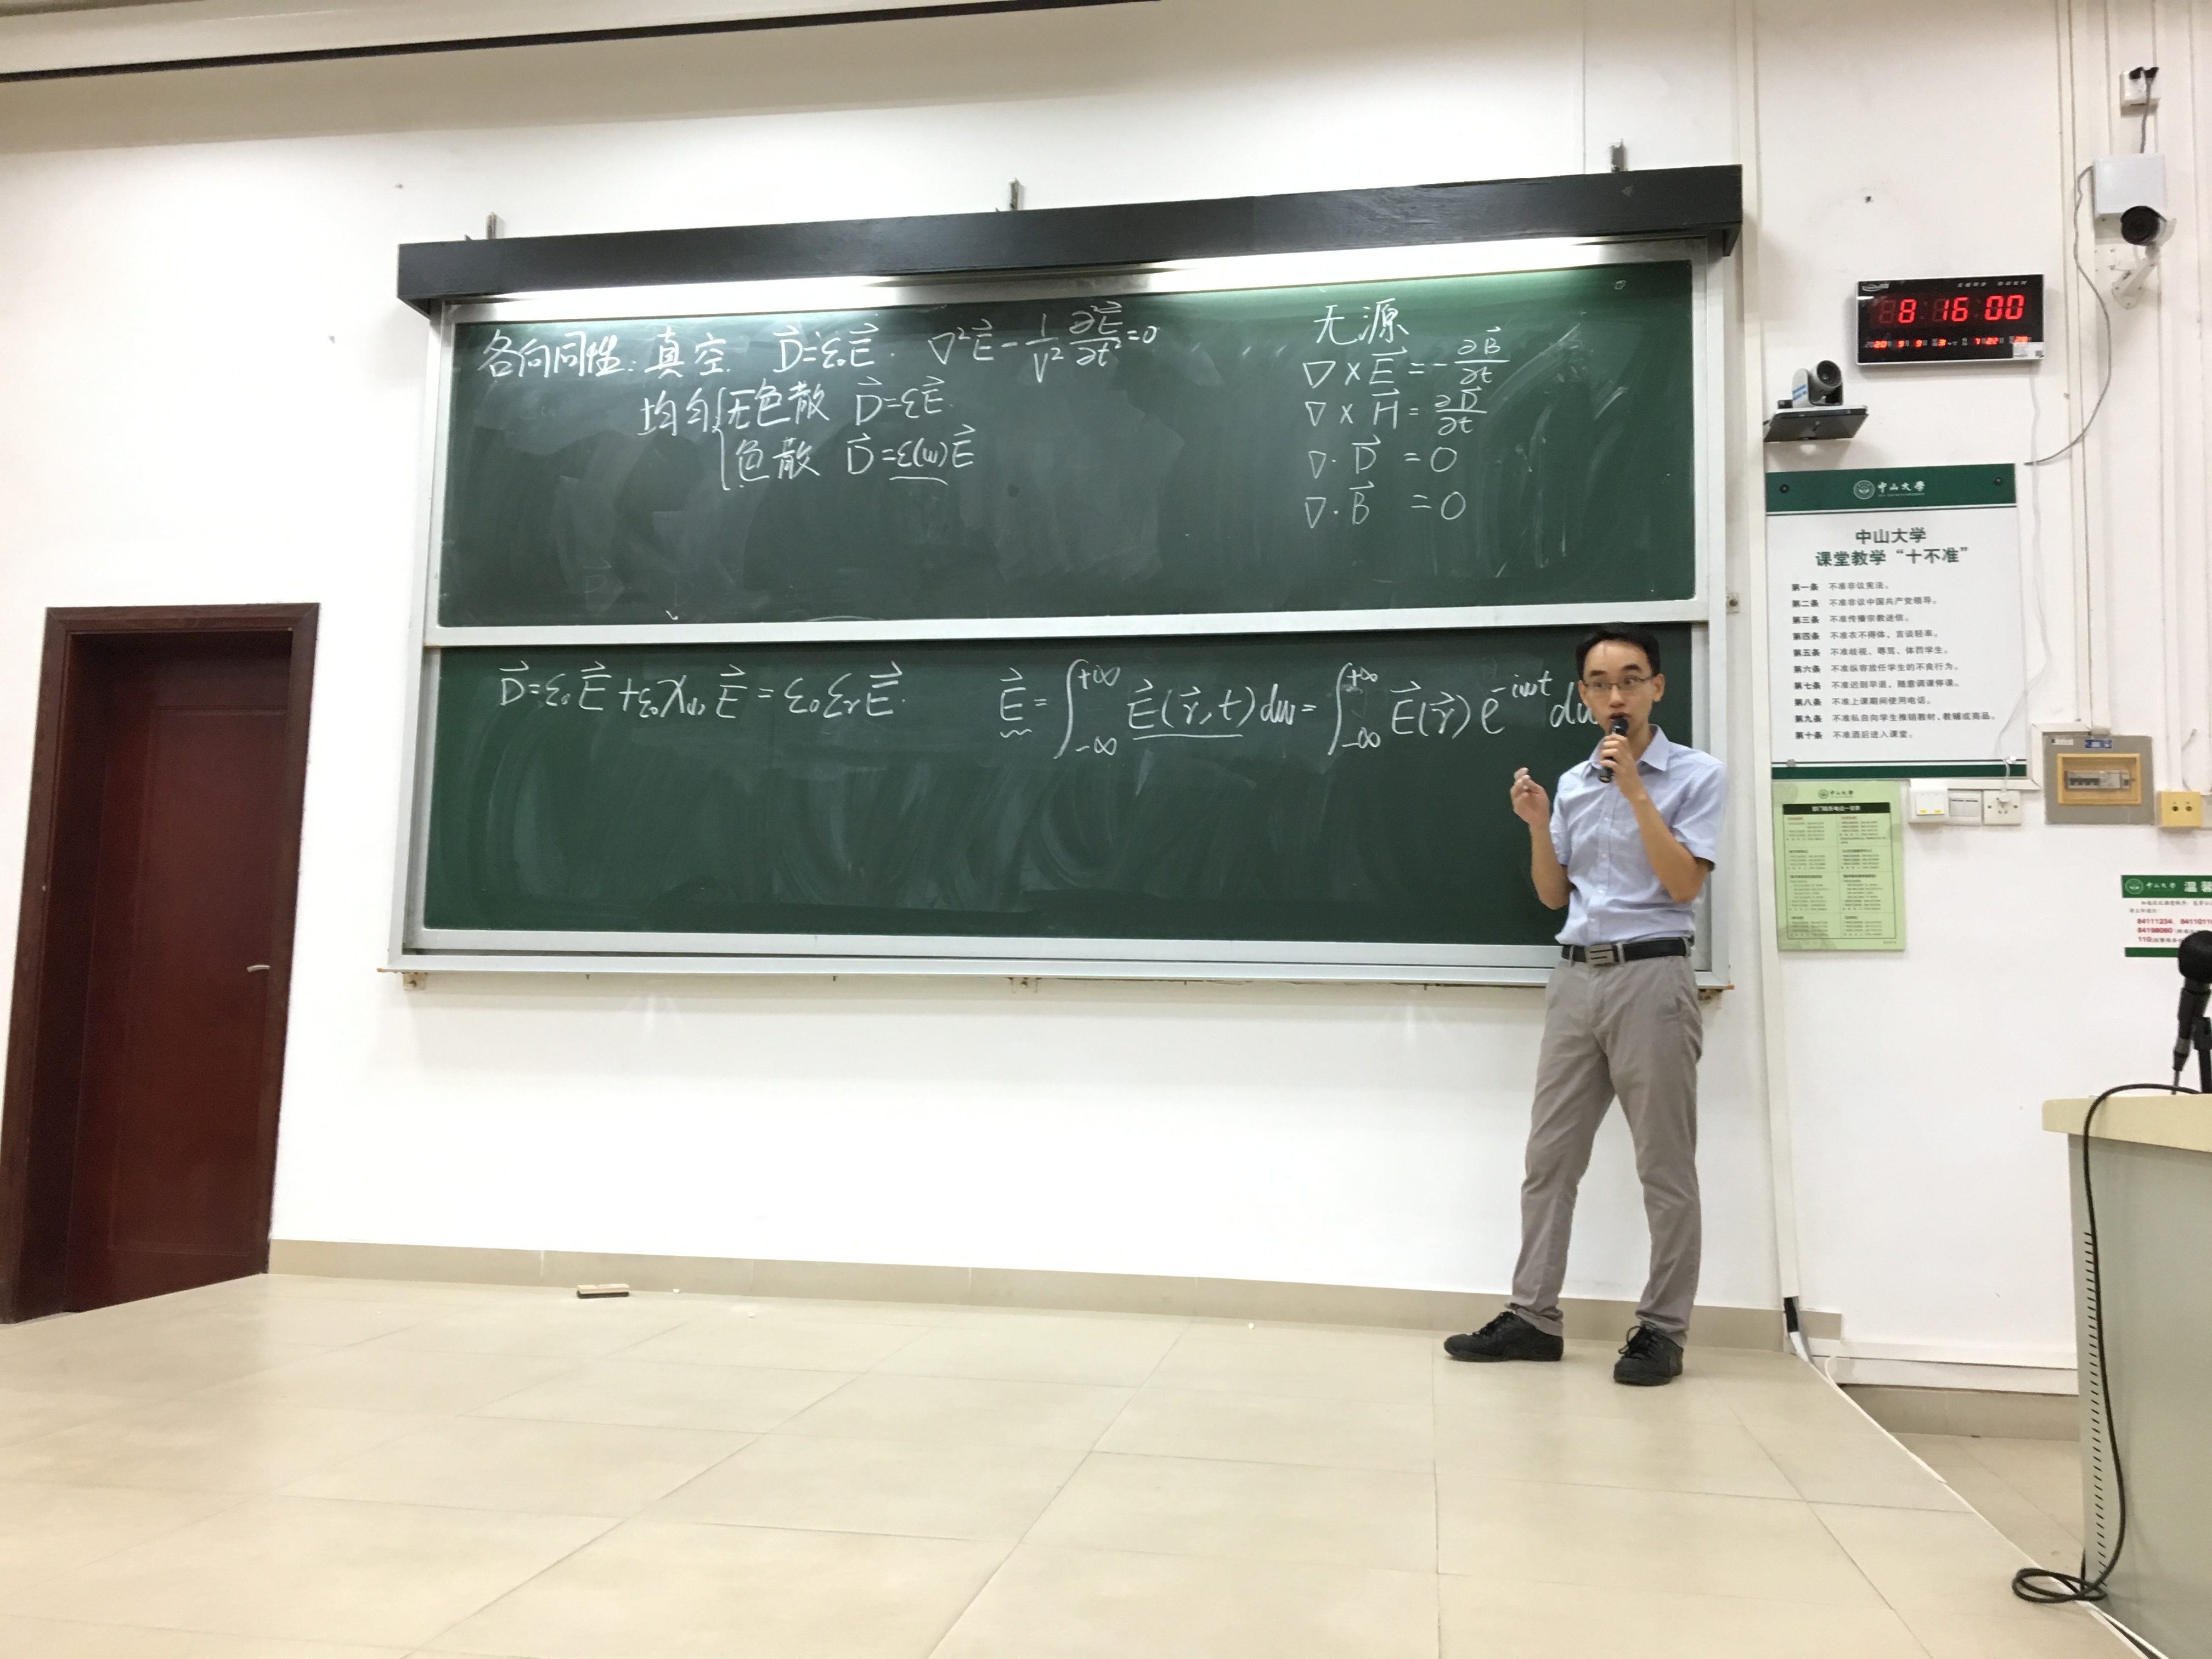 各向同性: 真空 D⃗=ε₀E⃗. ∇²E⃗ - 1/V² ∂²E⃗/∂t² = 0
均匀{无色散 D⃗=εE⃗.
色散 D⃗=ε(ω)E⃗
无源
∇×E⃗ = -∂B⃗/∂t
∇×H⃗ = ∂D⃗/∂t
∇·D⃗ = 0
∇·B⃗ = 0
D⃗=ε₀E⃗+ε₀χ₍₁₎E⃗ = ε₀εᵣE⃗.
E⃗ = ∫₋∞⁺∞ E⃗(r⃗,t)dω = ∫₋∞⁺∞ E⃗(r⃗)e^{-iωt}dω
8:16:00
中山大學
中山大学
课堂教学“十不准”
第一条 不准非议宪法。
第二条 不准非议中国共产党领导。
第三条 不准传播宗教迷信。
第四条 不准衣不得体、言谈轻率。
第五条 不准歧视、辱骂、体罚学生。
第六条 不准纵容放任学生的不良行为。
第七条 不准迟到早退，随意调课停课。
第八条 不准上课期间使用电话。
第九条 不准私自向学生推销教材、教辅或商品。
第十条 不准酒后进入课堂。
中山大學
中山大學 温馨
84111234、
84198060
110